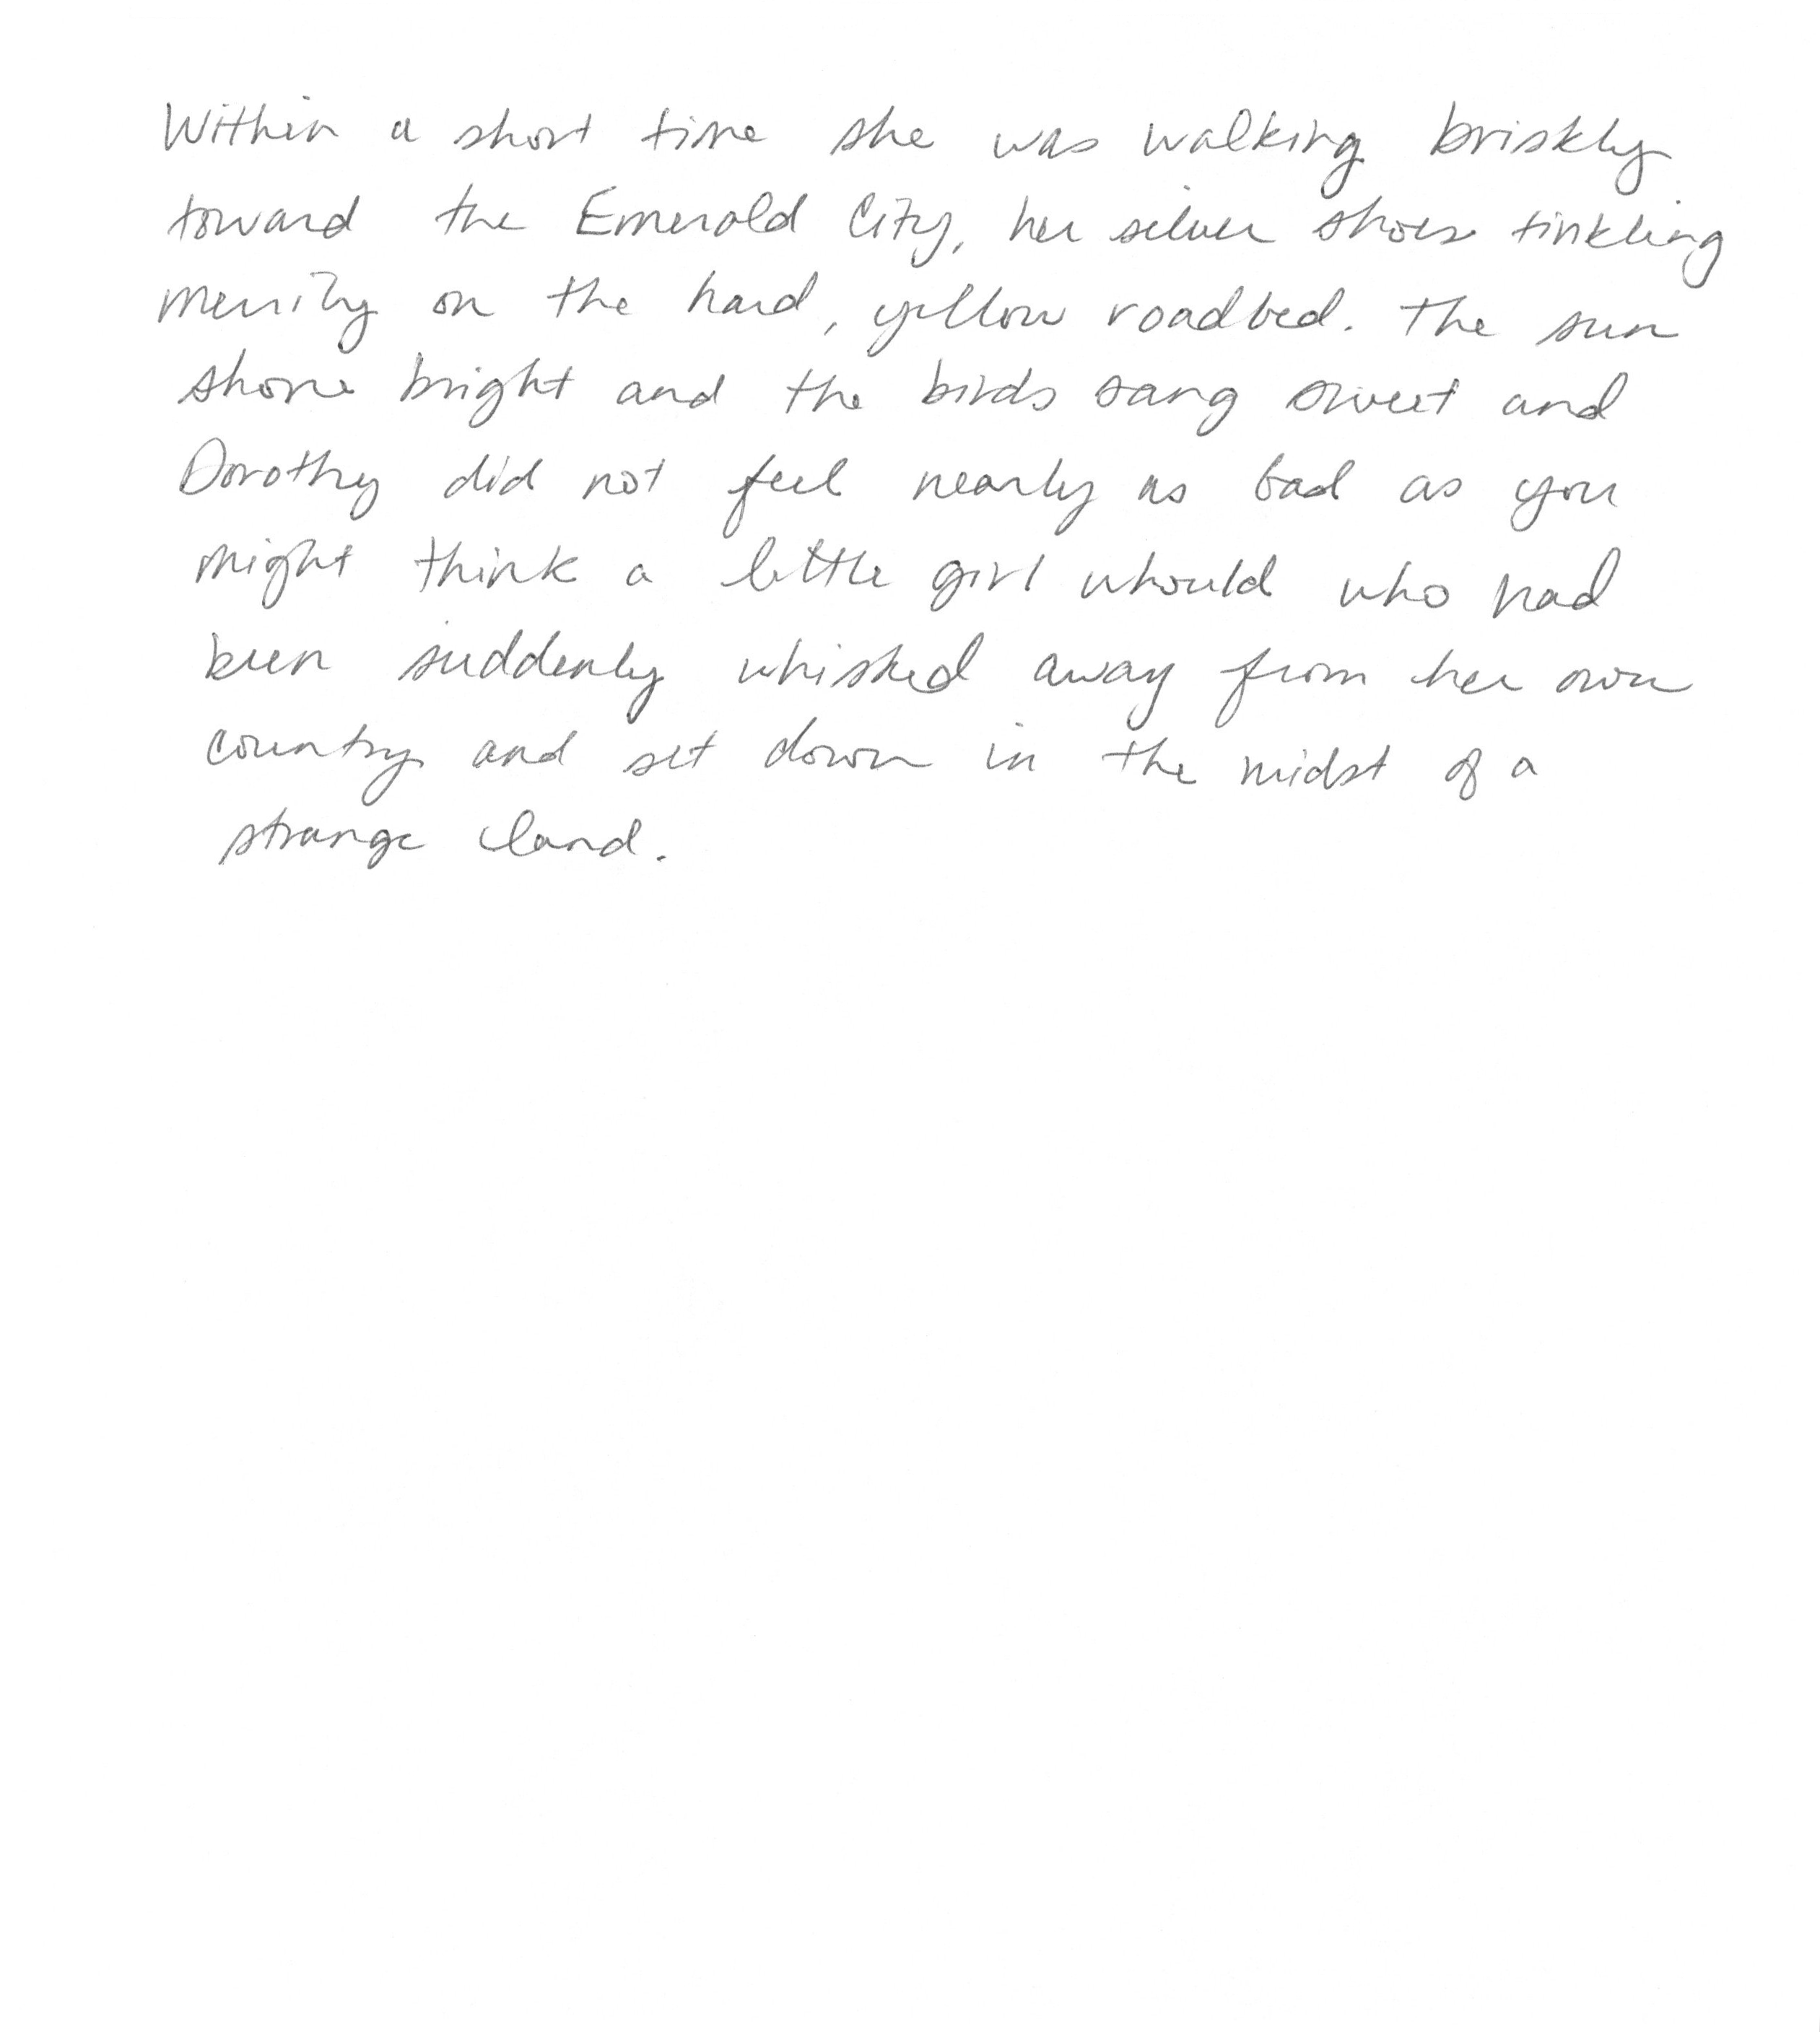 Within a short time she was walking briskly
toward the Emerald City, her silver shoes tinkling
merrily on the hard, yellow roadbed. The sun
shone bright and the birds sang sweet and
Dorothy did not feel nearly as bad as you
might think a little girl whould who had
been suddenly whisked away from her own
country and set down in the midst of a
strange land.